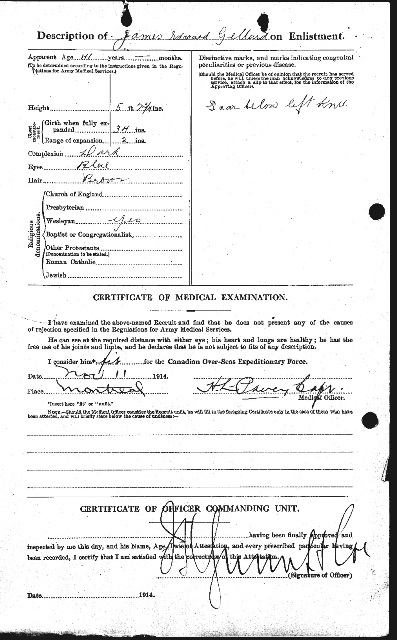 Description of James Edward Gelland on Enlistment.
Apparent Age 41 years months.
(To be determined according to the instructions given in the Regulations for Army Medical Services.)
Height 5 ft. ins.
Chest measurement
Girth when fully expanded 34 ins.
Range of expansion 2 ins.
Complexion Dark
Eyes Blue
Hair Brown
Religious denominations.
Church of England
Presbyterian
Wesleyan Yes
Baptist or Congregationalist
Other Protestants
(Denomination to be stated.)
Roman Catholic
Jewish
Distinctive marks, and marks indicating congenital peculiarities or previous disease.
(Should the Medical Officer be of opinion that the recruit has served before, he will, unless the man acknowledges to any previous service, attach a slip to that effect, for the information of the Approving Officer).
Scar below left knee
CERTIFICATE OF MEDICAL EXAMINATION.
I have examined the above-named Recruit and find that he does not present any of the causes
of rejection specified in the Regulations for Army Medical Services.
He can see at the required distance with either eye; his heart and lungs are healthy; he has the
free use of his joints and limbs, and he declares that he is not subject to fits of any description.
I consider him* fit for the Canadian Over-Seas Expeditionary Force.
Date Nov 11 1914.
Place Montreal
Capt.
Medical Officer.
*Insert here "fit" or "unfit."
NOTE.—Should the Medical Officer consider the Recruit unfit, he will fill in the foregoing Certificate only in the case of those who have
been attested, and will briefly state below the cause of unfitness:—
CERTIFICATE OF OFFICER COMMANDING UNIT.
having been finally approved and
inspected by me this day, and his Name, Age, Date of Attestation, and every prescribed particular having
been recorded, I certify that I am satisfied with the correctness of this Attestation.
(Signature of Officer)
Date 1914.